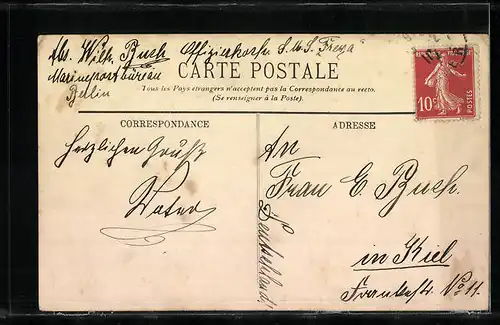 Abs. Wilh. Buch Offizierkoch S.M.S. "Freya"
Marinepostbüreau
Berlin
CARTE POSTALE
Tous les Pays étrangers n'acceptent pas la Correspondance au recto.
(Se renseigner à la Poste).
10c
POSTES
CORRESPONDANCE
ADRESSE
Herzlichen Gruß
Vater
An
Frau E. Buch.
in Kiel
No 11.
Deutschland!